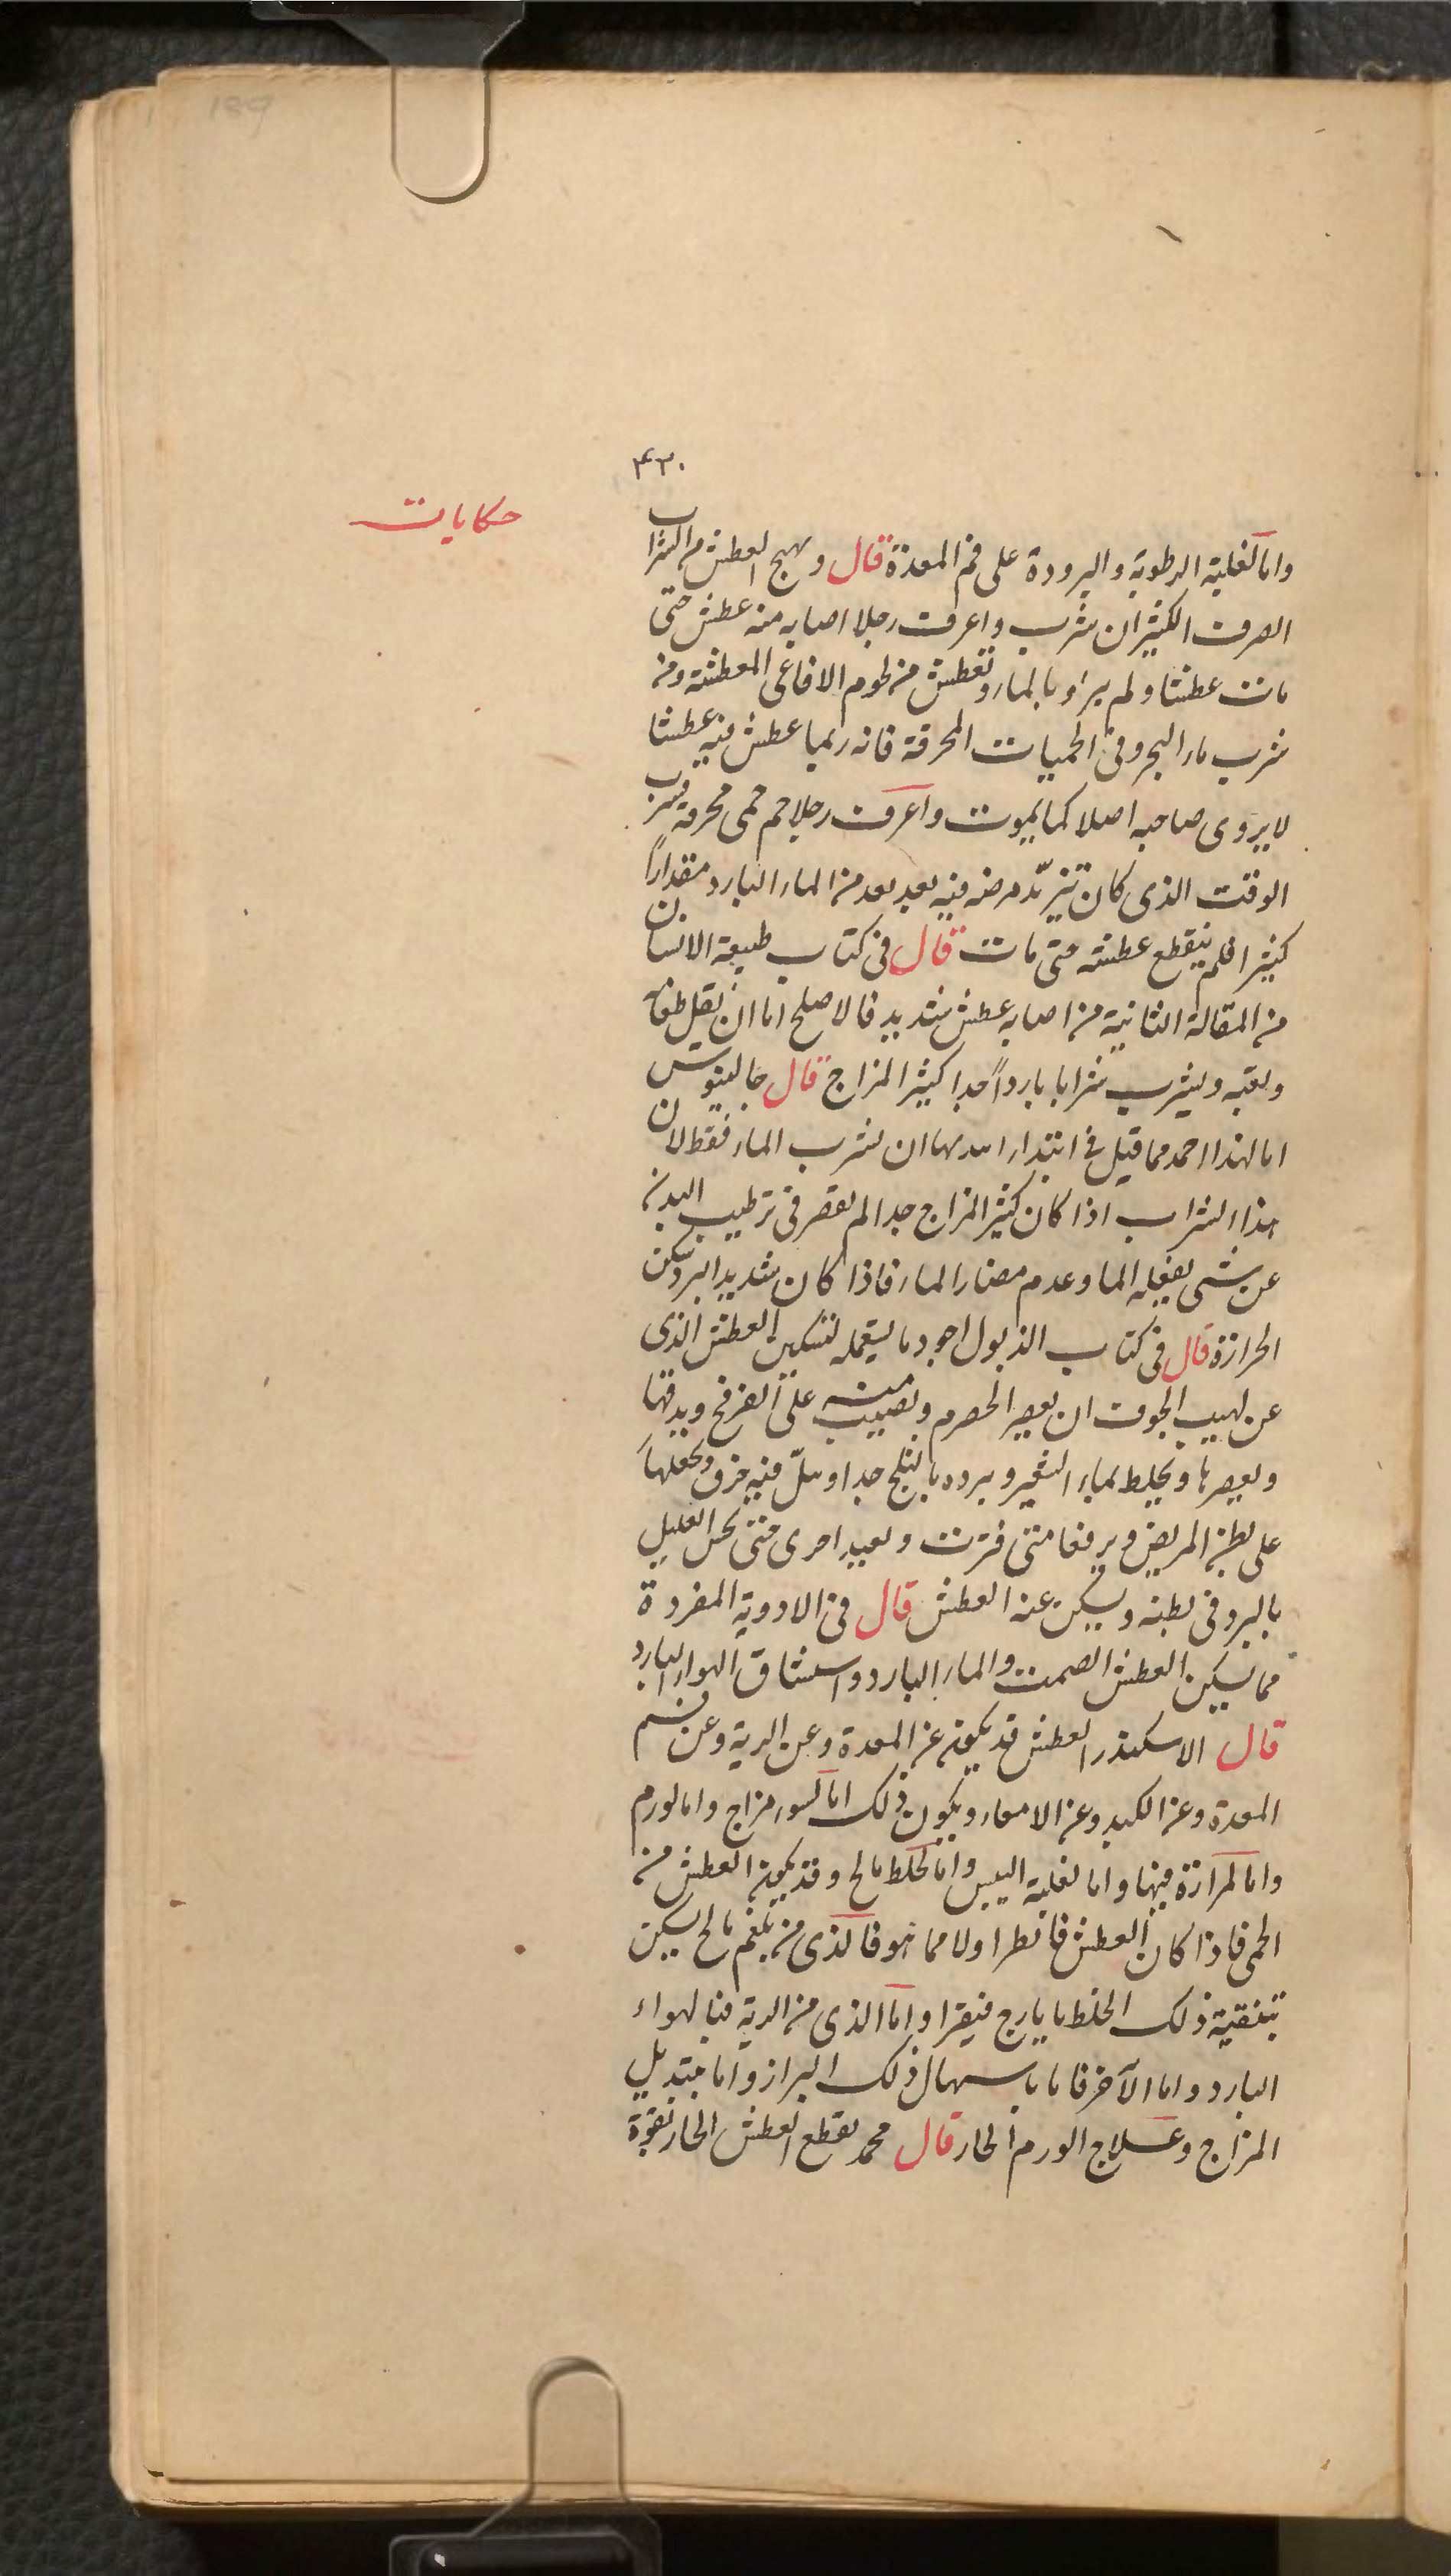 189
۴۲۰
حكايات
واما لغلبة الرطوبة والبرودة على فم المعدة قال ويهيج العطش من الشراب
الصرف الكثير ان شرب واعرف رجلا اصابه منه عطش حتى
مات عطشا ولم يرو بالماء وتعطش من لحوم الافاعى المعطشة ومن
شرب ماء البحر وفى الحميات المحرقة فانه ربما عطش فيه عطشا
لا يروى صاحبه اصلا كما يموت واعرف رجلا حم حمى محرقة فشرب
الوقت الذى كان تزيد مرضه فيه بعد بعد من الماء البارد مقدارا
كثيرا فلم ينقطع عطشه حتى مات قال فى كتاب طبيعة الانسان
من المقالة الثانية من اصابه عطش شديد فالاصلح اما ان يقل طعامه
وتعبه ويشرب شرابا باردا جدا كثير المزاج قال جالينوس
اما لهذا احمد مما قيل فى ابتداء ان يشرب الماء فقط لان
هذا الشراب اذا كان كثير المزاج جدا لم يقصر فى ترطيب البدن
عن شى يفعله الما وعدم مضار الماء فاذا كان شديد البرد سكن
الحرارة قال فى كتاب الذبول اجود ما يستعمله لتسكين العطش الذى
عن لهيب الجوف ان يعصر الحصرم ويصب منه على الفرفخ ويدقها
ويعصرها ويخلط بماء الشعير ويبرده بالثلج جدا وبل فيه خرق ويجعلها
على بطن المريض ويرفعها متى فترت ويعيد اخرى حتى يحس العليل
بالبرد فى بطنه ويسكن عنه العطش قال فى الادوية المفردة
مما يسكن العطش الصمت والماء البارد واستنشاق الهواء البارد
قال الاسكندر العطش قد يكون عن المعدة وعن الرية وعن فم
المعدة وعن الكبد وعن الامعاء ويكون ذلك اما لسوء مزاج واما لورم
واما لمرارة فيها واما لغلبة اليبس واما لخلط مالح وقد يكون العطش من
الحمى فاذا كان العطش فانظر اولا مما هو فالذى من بلغم مالح يسكن
بتنقية ذلك الخلط بايارج فيقرا واما الذى من الرية فبالهواء
البارد واما الآخر فاما باسهال ذلك البراز واما بتبديل
المزاج وعلاج الورم الحار قال محمد يقطع العطش الحار بقوة